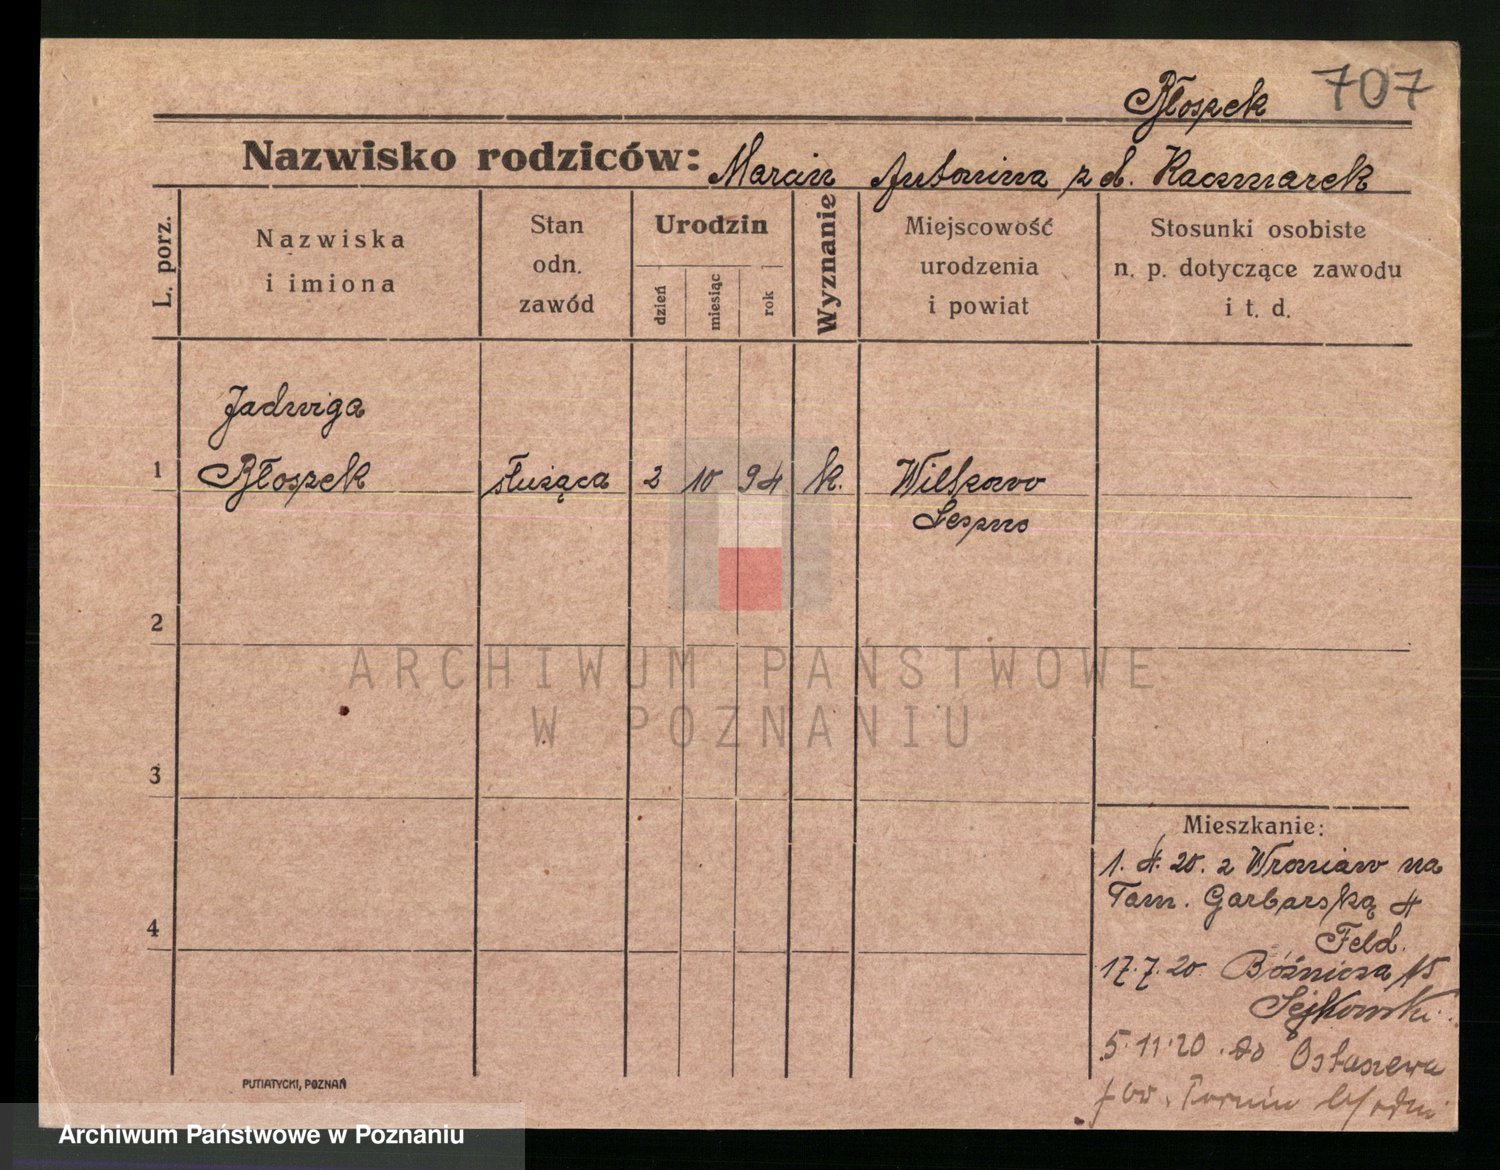 Błoszek 707
Nazwisko rodziców: Marcin Antonina z d. Kaczmarek
L. porz.
Nazwiska
i imiona
Stan
odn.
zawód
Urodzin
dzień
miesiąc
rok
Wyznanie
Miejscowość
urodzenia
i powiat
Stosunki osobiste
n. p. dotyczące zawodu
i t. d.
Jadwiga
1 Błoszek służąca 2 10 94 k. Wilkowo
Leszno
2
ARCHIWUM PAŃSTWOWE
W POZNANIU
3
Mieszkanie:
1. 4. 20. z Wroniaw na
Tam. Garbarską 4
4
Feld.
17.7.20 Bóżnicza 15
5.11.20. do Ostaszewa
pow. Toruń
PUTIATYCKI, POZNAŃ
Archiwum Państwowe w Poznaniu